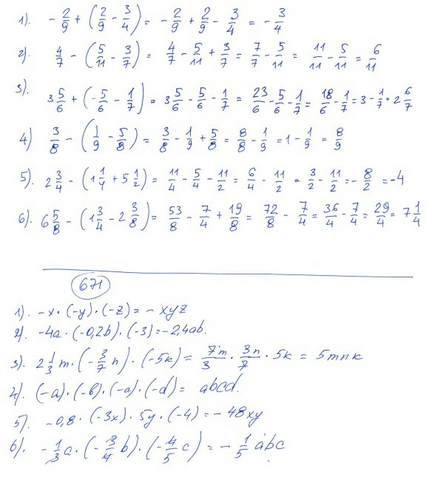 1). -2/9 + (2/9 - 3/4) = -2/9 + 2/9 - 3/4 = -3/4
2). 4/7 - (5/11 - 3/7) = 4/7 - 5/11 + 3/7 = 7/7 - 5/11 = 11/11 - 5/11 = 6/11
3). 3 5/6 + (-5/6 - 1/7) = 3 5/6 - 5/6 - 1/7 = 23/6 - 5/6 - 1/7 = 18/6 - 1/7 = 3 - 1/7 = 2 6/7
4) 3/8 - (1/9 - 5/8) = 3/8 - 1/9 + 5/8 = 8/8 - 1/9 = 1 - 1/9 = 8/9
5). 2 3/4 - (1 1/4 + 5 1/2) = 11/4 - 5/4 - 11/2 = 6/4 - 11/2 = 3/2 - 11/2 = -8/2 = -4
6). 6 5/8 - (1 3/4 - 2 3/8) = 53/8 - 7/4 + 19/8 = 72/8 - 7/4 = 36/4 - 7/4 = 29/4 = 7 1/4
671
1). -x · (-y) · (-z) = - xyz
2). -4a · (-0,2b) · (-3) = -2,4ab.
3). 2 1/3 m · (-3/7 n) · (-5k) = 7m/3 · 3n/7 · 5k = 5mnk
4). (-a) · (-b) · (-c) · (-d) = abcd.
5). -0,8 · (-3x) · 5y · (-4) = -48xy
6). -1/3 a · (-3/4 b) · (-4/5 c) = -1/5 abc